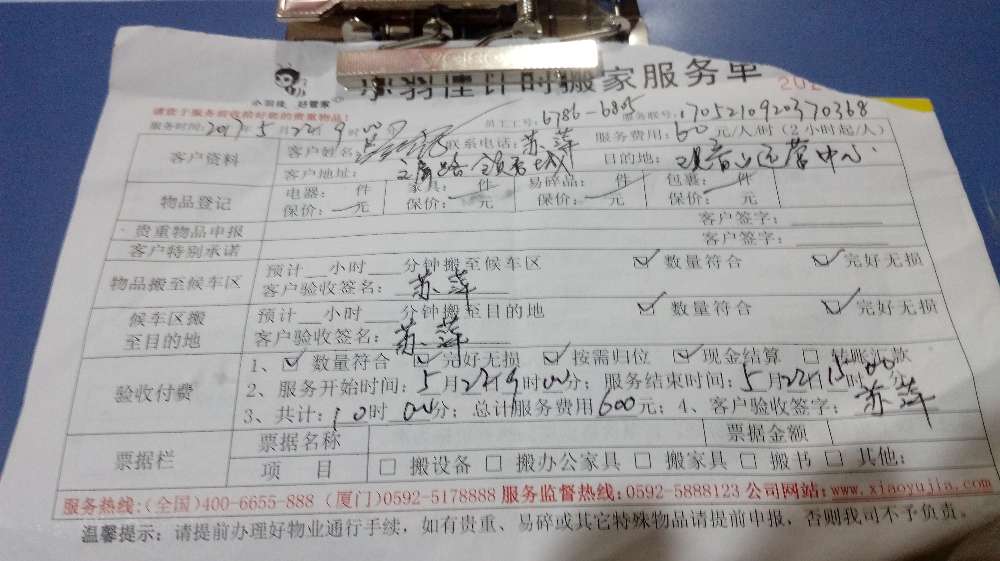 小羽佳 好管家
小羽佳计时搬家服务单
请您于服务前收拾好您的贵重物品!
员工工号: 6786-6805 服务联号: 1705210920370368
服务时间: 2017年5月22日9时00分
服务费用: 60元/人时(2小时起/人)
客户资料 客户姓名: 联系电话: 苏萍
客户地址: 目的地: 观音山运营中心
物品登记 电器: 件 家具: 件 易碎品: 件 包裹: 件
保价: 元 保价: 元 保价: 元 保价: 元
贵重物品申报 客户签字:
客户特别承诺 客户签字:
物品搬至候车区 预计__小时__分钟搬至候车区 ☑数量符合 ☑完好无损
客户验收签名: 苏萍
候车区搬至目的地 预计__小时__分钟搬至目的地 ☑数量符合 ☑完好无损
客户验收签名: 苏萍
验收付费 1、☑数量符合 ☑完好无损 ☑按需归位 ☑现金结算 □转账汇款
2、服务开始时间: 5月22日9时00分; 服务结束时间: 5月22日15时00分
3、共计: 10时00分; 总计服务费用600元; 4、客户验收签字: 苏萍
票据栏 票据名称 票据金额
项目 □搬设备 □搬办公家具 □搬家具 □搬书 □其他:
服务热线:(全国)400-6655-888 (厦门)0592-5178888 服务监督热线:0592-5888123 公司网站:www.xiaoyujia.com
温馨提示: 请提前办理好物业通行手续, 如有贵重、易碎或其它特殊物品请提前申报, 否则我司不予负责。